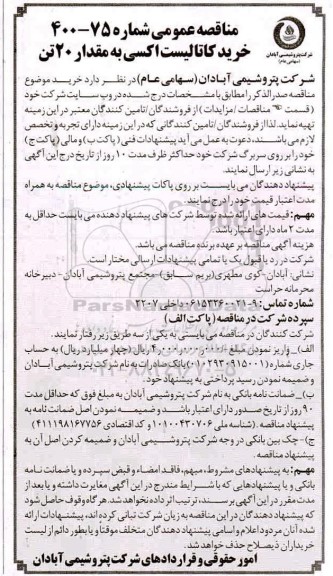 شرکت پتروشیمی آبادان
(سهامی عام)
مناقصه عمومی شماره ۷۵-۴۰۰
خرید کاتالیست اکسی به مقدار ۲۰ تن
شرکت پتروشیمی آبادان (سهامی عام) در نظر دارد خرید موضوع
مناقصه صدرالذکر را مطابق با مشخصات درج شده در وب سایت شرکت خود
(قسمت مناقصات / مزایدات) از فروشندگان/تامین کنندگان معتبر در این زمینه
تهیه نماید. لذا از فروشندگان/تامین کنندگانی که در این زمینه دارای تجربه و تخصص
لازم می باشند، دعوت به عمل می آید پیشنهادات فنی (پاکت ب) و مالی (پاکت ج)
خود را بر روی سربرگ شرکت خود حداکثر ظرف مدت ۱۰ روز از تاریخ درج این آگهی
به نشانی زیر ارسال نمایند.
پیشنهاد دهندگان می بایست بر روی پاکات پیشنهادی، موضوع مناقصه به همراه
مدت اعتبار قیمت خود را درج نمایند.
مهم: قیمت های ارائه شده توسط شرکت های پیشنهاد دهنده می بایست حداقل به
مدت ۲ ماه دارای اعتبار باشد.
هزینه آگهی مناقصه بر عهده برنده مناقصه می باشد.
شرکت در رد یا قبول یک یا تمامی پیشنهادات ارسالی مختار است.
نشانی: آبادان - کوی مطهری (بریم سابق) مجتمع پتروشیمی آبادان - دبیرخانه
محرمانه حراست
شماره تماس: ۹-۰۶۱۵۳۲۶۰۰۲۱ داخلی ۲۲۰۷
سپرده شرکت در مناقصه (پاکت الف)
شرکت کنندگان در مناقصه می بایستی به یکی از سه طریق زیر رفتار نمایند.
الف) واریز نمودن مبلغ ریال (چهار میلیارد ریال) به حساب
جاری شماره بانک صادرات به نام شرکت پتروشیمی آبادان
و ضمیمه نمودن رسید پرداختی به پیشنهاد خود.
ب) ضمانت نامه بانکی به نام شرکت پتروشیمی آبادان به مبلغ فوق که حداقل مدت
۹۰ روز از تاریخ صدور دارای اعتبار باشد و ضمیمه نمودن اصل ضمانت نامه به
پیشنهاد مناقصه. (شناسه ملی ۱۰۱۰۰۴۳۰۷۰۶ و کد اقتصادی ۴۱۱۱۹۸۱۶۷۷۵۶)
ج) چک بین بانکی در وجه شرکت پتروشیمی آبادان و ضمیمه کردن اصل آن به
پیشنهاد مناقصه.
مهم: به پیشنهادهای مشروط، مبهم، فاقد امضاء و فیض سپرده و یا ضمانت نامه
بانکی و یا پیشنهادهایی که با شرایط مندرج در این آگهی مغایرت داشته و یا بعد از
مدت مقرر در این آگهی برسند، ترتیب اثر داده نخواهد شد. هر گاه وقوف حاصل شود
که پیشنهاد دهندگان در این مناقصه به زیان شرکت تبانی کرده اند، پیشنهادات ارائه
شده آنان مردود اعلام و اسامی پیشنهاد دهندگان متخلف موقتا و یا بطور دائم از لیست
خریداران ذیصلاح حذف خواهد شد.
امور حقوقی و قراردادهای شرکت پتروشیمی آبادان